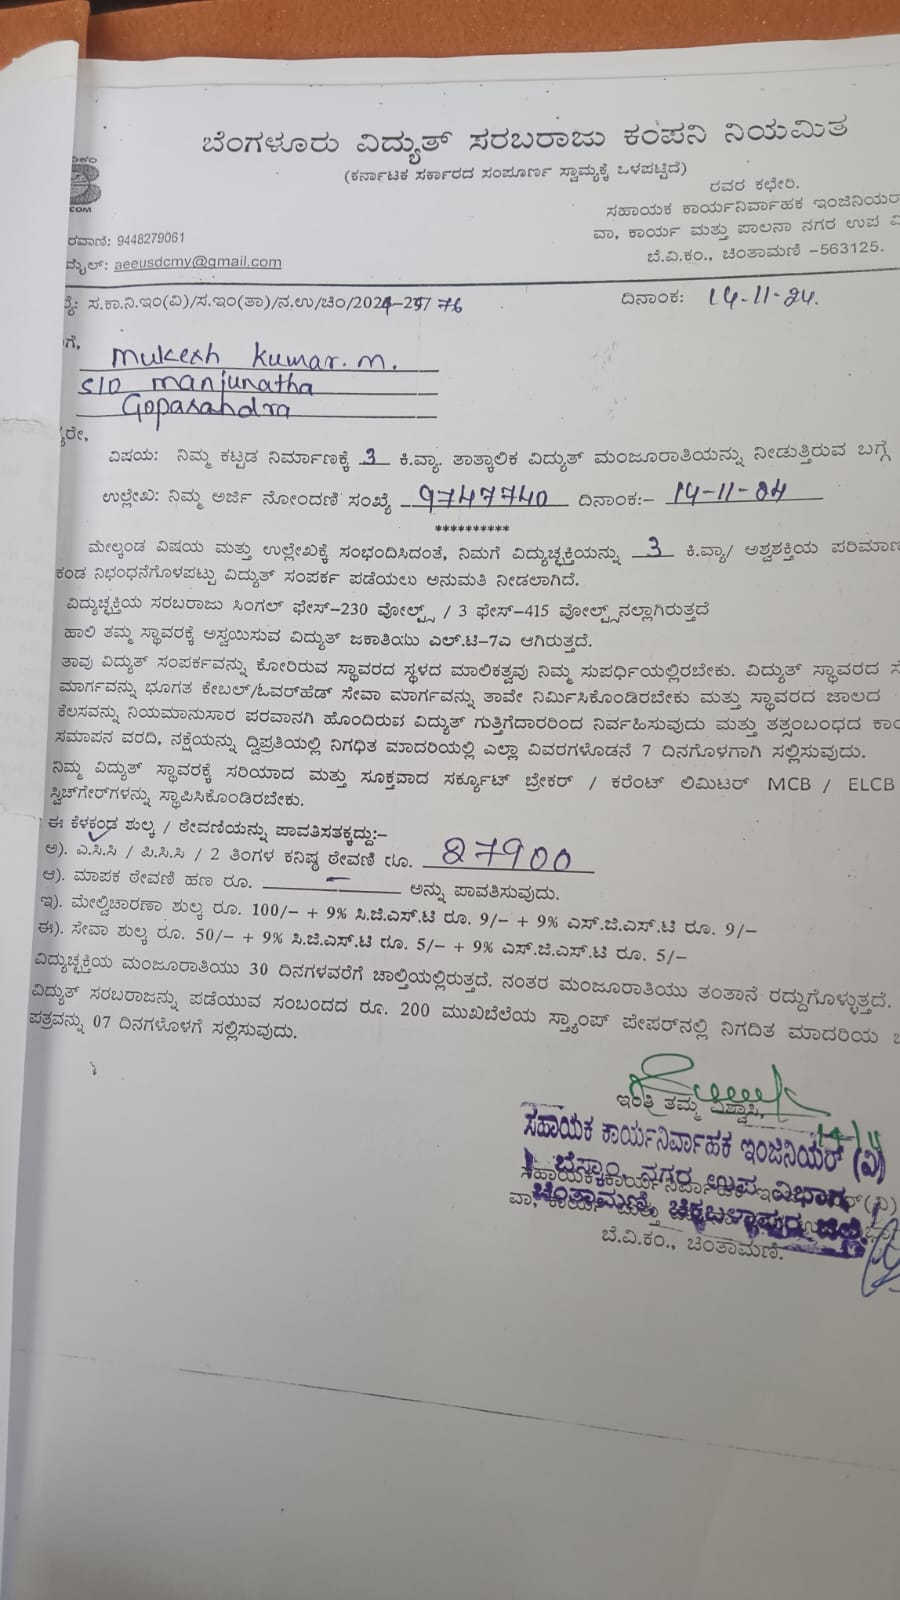 ಬೆಂಗಳೂರು ವಿದ್ಯುತ್ ಸರಬರಾಜು ಕಂಪನಿ ನಿಯಮಿತ
(ಕರ್ನಾಟಕ ಸರ್ಕಾರದ ಸಂಪೂರ್ಣ ಸ್ವಾಮ್ಯಕ್ಕೆ ಒಳಪಟ್ಟಿದೆ)
ರವರ ಕಛೇರಿ.
ಸಹಾಯಕ ಕಾರ್ಯನಿರ್ವಾಹಕ ಇಂಜಿನಿಯರ
ವಾ, ಕಾರ್ಯ ಮತ್ತು ಪಾಲನಾ ನಗರ ಉಪ ವಿ
ಬೆ.ವಿ.ಕಂ., ಚಿಂತಾಮಣಿ –563125.
COM
ರವಾಣಿ: 9448279061
ಮೈಲ್: aeeusdcmy@gmail.com
ಸ.ಕಾ.ನಿ.ಇಂ(ವಿ)/ಸ.ಇಂ(ತಾ)/ನ.ಉ/ಚಿಂ/2024-25/ 76
ದಿನಾಂಕ: 14-11-24.
ಗೆ,
Mukesh Kumar. M.
S/O Manjunatha
Gopasandra
ರೇ,
ವಿಷಯ: ನಿಮ್ಮ ಕಟ್ಟಡ ನಿರ್ಮಾಣಕ್ಕೆ 3 ಕಿ.ವ್ಯಾ. ತಾತ್ಕಾಲಿಕ ವಿದ್ಯುತ್ ಮಂಜೂರಾತಿಯನ್ನು ನೀಡುತ್ತಿರುವ ಬಗ್ಗೆ
ಉಲ್ಲೇಖ: ನಿಮ್ಮ ಅರ್ಜಿ ನೋಂದಣಿ ಸಂಖ್ಯೆ 9747740 ದಿನಾಂಕ:- 14-11-24
**********
ಮೇಲ್ಕಂಡ ವಿಷಯ ಮತ್ತು ಉಲ್ಲೇಖಕ್ಕೆ ಸಂಭಂದಿಸಿದಂತೆ, ನಿಮಗೆ ವಿದ್ಯುಚ್ಛಕ್ತಿಯನ್ನು 3 ಕಿ.ವ್ಯಾ/ ಅಶ್ವಶಕ್ತಿಯ ಪರಿಮಾಣ
ಕಂಡ ನಿಭಂಧನೆಗೊಳಪಟ್ಟು ವಿದ್ಯುತ್ ಸಂಪರ್ಕ ಪಡೆಯಲು ಅನುಮತಿ ನೀಡಲಾಗಿದೆ.
ವಿದ್ಯುಚ್ಛಕ್ತಿಯ ಸರಬರಾಜು ಸಿಂಗಲ್ ಫೇಸ್–230 ವೋಲ್ಟ್ಸ್ / 3 ಫೇಸ್–415 ವೋಲ್ಟ್ಸ್‌ನಲ್ಲಾಗಿರುತ್ತದೆ
ಹಾಲಿ ತಮ್ಮ ಸ್ಥಾವರಕ್ಕೆ ಅಸ್ವಯಿಸುವ ವಿದ್ಯುತ್ ಜಕಾತಿಯು ಎಲ್.ಟಿ–7ಎ ಆಗಿರುತ್ತದೆ.
ತಾವು ವಿದ್ಯುತ್ ಸಂಪರ್ಕವನ್ನು ಕೋರಿರುವ ಸ್ಥಾವರದ ಸ್ಥಳದ ಮಾಲಿಕತ್ವವು ನಿಮ್ಮ ಸುಪರ್ಧಿಯಲ್ಲಿರಬೇಕು. ವಿದ್ಯುತ್ ಸ್ಥಾವರದ ಸೆ
ಮಾರ್ಗವನ್ನು ಭೂಗತ ಕೇಬಲ್/ಓವರ್‌ಹೆಡ್ ಸೇವಾ ಮಾರ್ಗವನ್ನು ತಾವೇ ನಿರ್ಮಿಸಿಕೊಂಡಿರಬೇಕು ಮತ್ತು ಸ್ಥಾವರದ ಜಾಲದ
ಕೆಲಸವನ್ನು ನಿಯಮಾನುಸಾರ ಪರವಾನಗಿ ಹೊಂದಿರುವ ವಿದ್ಯುತ್ ಗುತ್ತಿಗೆದಾರರಿಂದ ನಿರ್ವಹಿಸುವುದು ಮತ್ತು ತತ್ಸಂಬಂಧದ ಕಾ
ಸಮಾಪನ ವರದಿ, ನಕ್ಷೆಯನ್ನು ದ್ವಿಪ್ರತಿಯಲ್ಲಿ ನಿಗಧಿತ ಮಾದರಿಯಲ್ಲಿ ಎಲ್ಲಾ ವಿವರಗಳೊಡನೆ 7 ದಿನಗೊಳಗಾಗಿ ಸಲ್ಲಿಸುವುದು.
ನಿಮ್ಮ ವಿದ್ಯುತ್ ಸ್ಥಾವರಕ್ಕೆ ಸರಿಯಾದ ಮತ್ತು ಸೂಕ್ತವಾದ ಸರ್ಕ್ಯೂಟ್ ಬ್ರೇಕರ್ / ಕರೆಂಟ್ ಲಿಮಿಟರ್ MCB / ELCB
ಸ್ವಿಚ್‌ಗೇರ್‌ಗಳನ್ನು ಸ್ಥಾಪಿಸಿಕೊಂಡಿರಬೇಕು.
ಈ ಕೆಳಕಂಡ ಶುಲ್ಕ / ಠೇವಣಿಯನ್ನು ಪಾವತಿಸತಕ್ಕದ್ದು:–
ಅ). ಎ.ಸಿ.ಸಿ / ಪಿ.ಸಿ.ಸಿ / 2 ತಿಂಗಳ ಕನಿಷ್ಠ ಠೇವಣಿ ರೂ. 27900
ಆ). ಮಾಪಕ ಠೇವಣಿ ಹಣ ರೂ. – ಅನ್ನು ಪಾವತಿಸುವುದು.
ಇ). ಮೇಲ್ವಿಚಾರಣಾ ಶುಲ್ಕ ರೂ. 100/– + 9% ಸಿ.ಜಿ.ಎಸ್.ಟಿ ರೂ. 9/– + 9% ಎಸ್.ಜಿ.ಎಸ್.ಟಿ ರೂ. 9/–
ಈ). ಸೇವಾ ಶುಲ್ಕ ರೂ. 50/– + 9% ಸಿ.ಜಿ.ಎಸ್.ಟಿ ರೂ. 5/– + 9% ಎಸ್.ಜಿ.ಎಸ್.ಟಿ ರೂ. 5/–
ವಿದ್ಯುಚ್ಛಕ್ತಿಯ ಮಂಜೂರಾತಿಯು 30 ದಿನಗಳವರೆಗೆ ಚಾಲ್ತಿಯಲ್ಲಿರುತ್ತದೆ. ನಂತರ ಮಂಜೂರಾತಿಯು ತಂತಾನೆ ರದ್ದುಗೊಳ್ಳುತ್ತದೆ.
ವಿದ್ಯುತ್ ಸರಬರಾಜನ್ನು ಪಡೆಯುವ ಸಂಬಂದದ ರೂ. 200 ಮುಖಬೆಲೆಯ ಸ್ಟ್ಯಾಂಪ್ ಪೇಪರ್‌ನಲ್ಲಿ ನಿಗದಿತ ಮಾದರಿಯ
ಪತ್ರವನ್ನು 07 ದಿನಗಳೊಳಗೆ ಸಲ್ಲಿಸುವುದು.
ಇಂತಿ ತಮ್ಮ ವಿಶ್ವಾಸಿ,
ಸಹಾಯಕ ಕಾರ್ಯನಿರ್ವಾಹಕ ಇಂಜಿನಿಯರ್ (ವಿ)
ಬೆಸ್ಕಾಂ, ನಗರ ಉಪ ವಿಭಾಗ
ಚಿಂತಾಮಣಿ, ಚಿಕ್ಕಬಳ್ಳಾಪುರ ಜಿಲ್ಲೆ.
ಬೆ.ವಿ.ಕಂ., ಚಿಂತಾಮಣಿ.